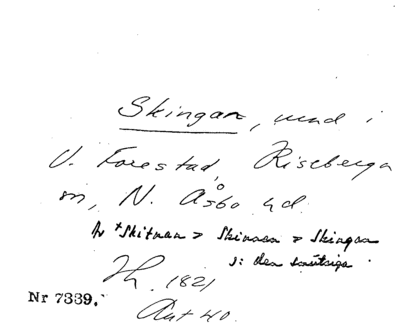 Skingan, und i
V. Forestad, Riseberga
sn, N. Åsbo hd.
Av *Skitnan > Skinnan > Skingan
ɔ: den smutsiga.
Th. 1821
Ant 40.
Nr 7339.